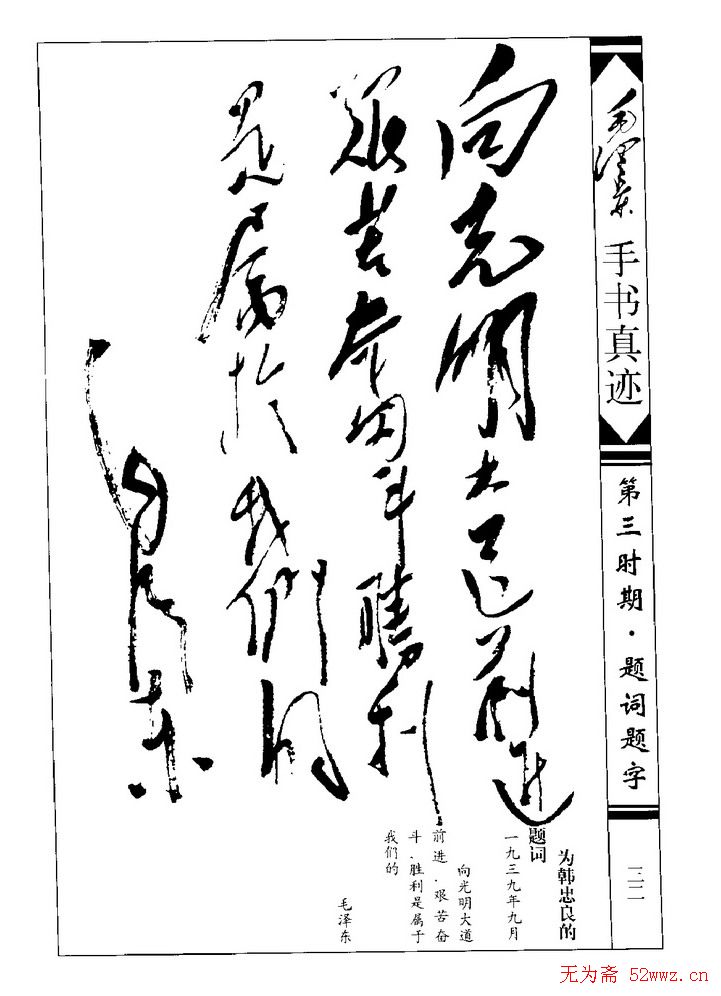 毛泽东
手书真迹
第三时期·题词题字
三二
向光明大道前进
艰苦奋斗胜利
是属於我们的
毛泽东
为韩忠良的
题词
一九三九年九月
向光明大道
前进．艰苦奋
斗．胜利是属于
我们的
毛泽东
无为斋 52wwz.cn